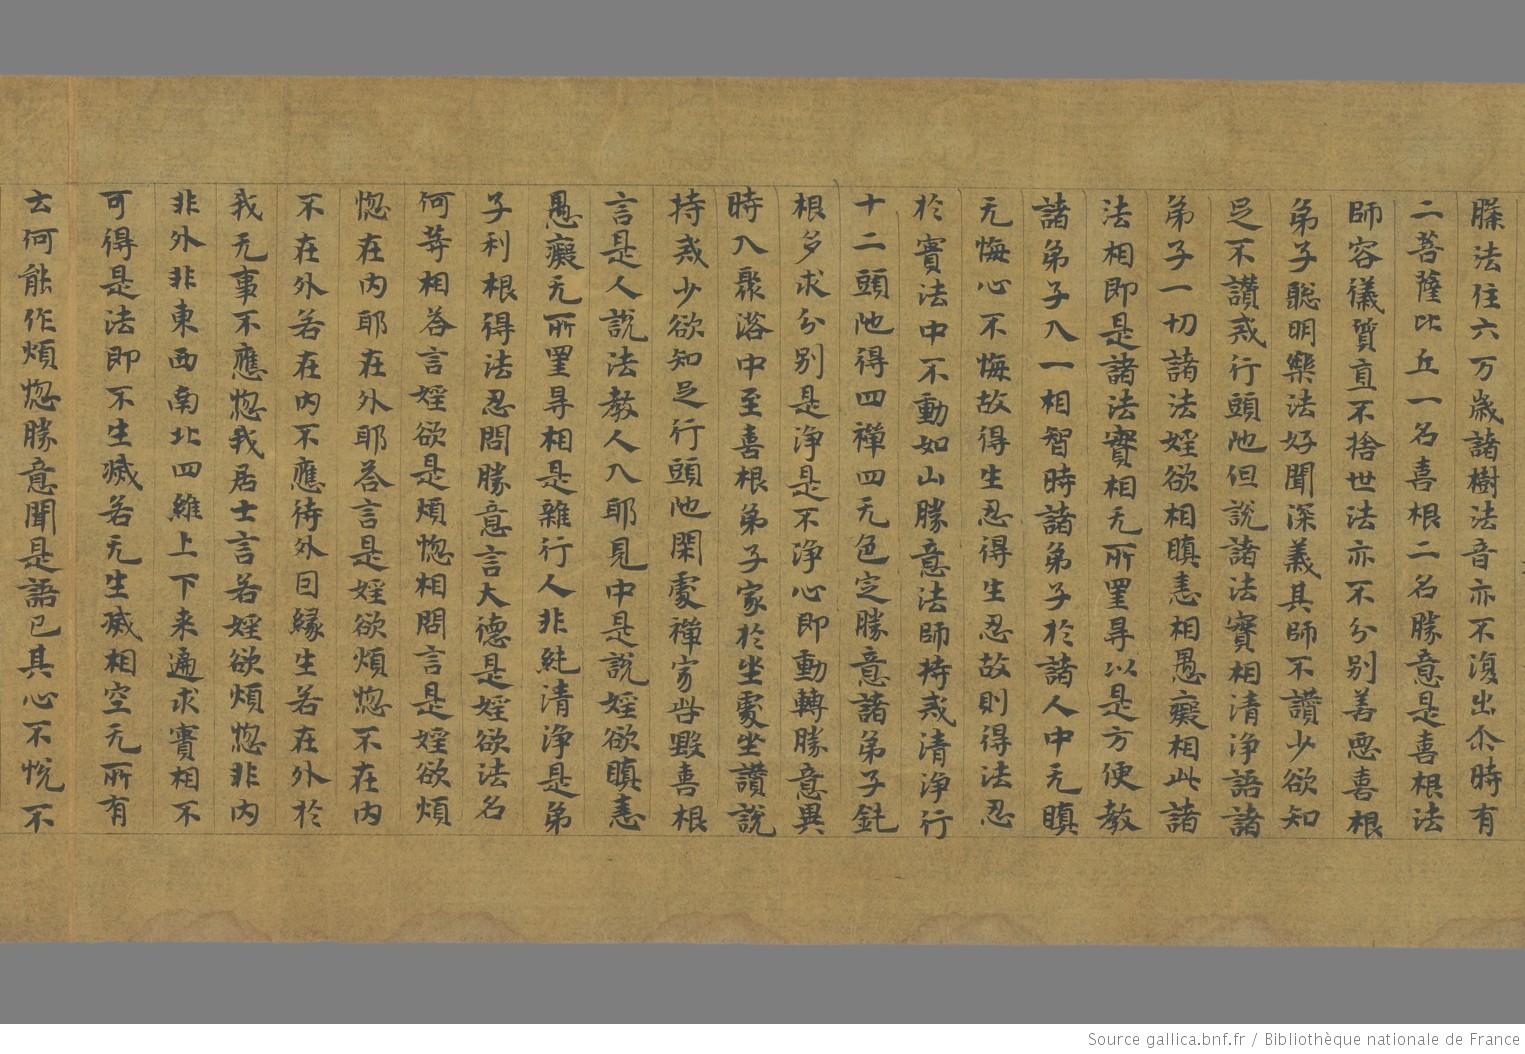 䐗法住六万歳諸樹法音亦不復出尒時有
二菩薩比丘一名喜根二名勝意是喜根法
師容儀質直不捨世法亦不分別善惡喜根
弟子聡明樂法好聞深義其師不讃少欲知
足不讃戒行頭陁但説諸法實相清浄語諸
弟子一切諸法婬欲相瞋恚相愚癡相此諸
法相即是諸法實相无所罣㝵以是方便教
諸弟子入一相智時諸弟子於諸人中无瞋
无悔心不悔故得生忍得生忍故則得法忍
於實法中不動如山勝意法師持戒清浄行
十二頭陁得四禪四无色定勝意諸弟子鈍
根多求分別是浄是不浄心即動轉勝意異
時入聚落中至喜根弟子家於坐處坐讃説
持戒少欲知足行頭陁閑處禪宻呰毀喜根
言是人説法教人入耶見中是説婬欲瞋恚
愚癡无所罣㝵相是雜行人非純清浄是弟
子利根得法忍問勝意言大德是婬欲法名
何等相荅言婬欲是煩惚相問言是婬欲煩
惚在内耶在外耶荅言是婬欲煩惚不在内
不在外若在内不應待外因縁生若在外於
我无事不應惚我居士言若婬欲煩惚非内
非外非東西南北四維上下来遍求實相不
可得是法即不生滅若无生滅相空无所有
云何能作煩惚勝意聞是語已其心不恱不
Source gallica.bnf.fr / Bibliothèque nationale de France